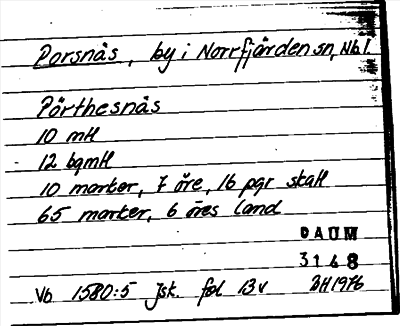 Porsnäs, by i Norrfjärden sn, Nb l
Pörthesnäs
10 mtl
12 bgmtl
10 marker, 7 öre, 16 pgr skatt
65 marker, 6 öres land
DAUM
3148
Vb 1580:5 Jsk. fol 13v BH 1976